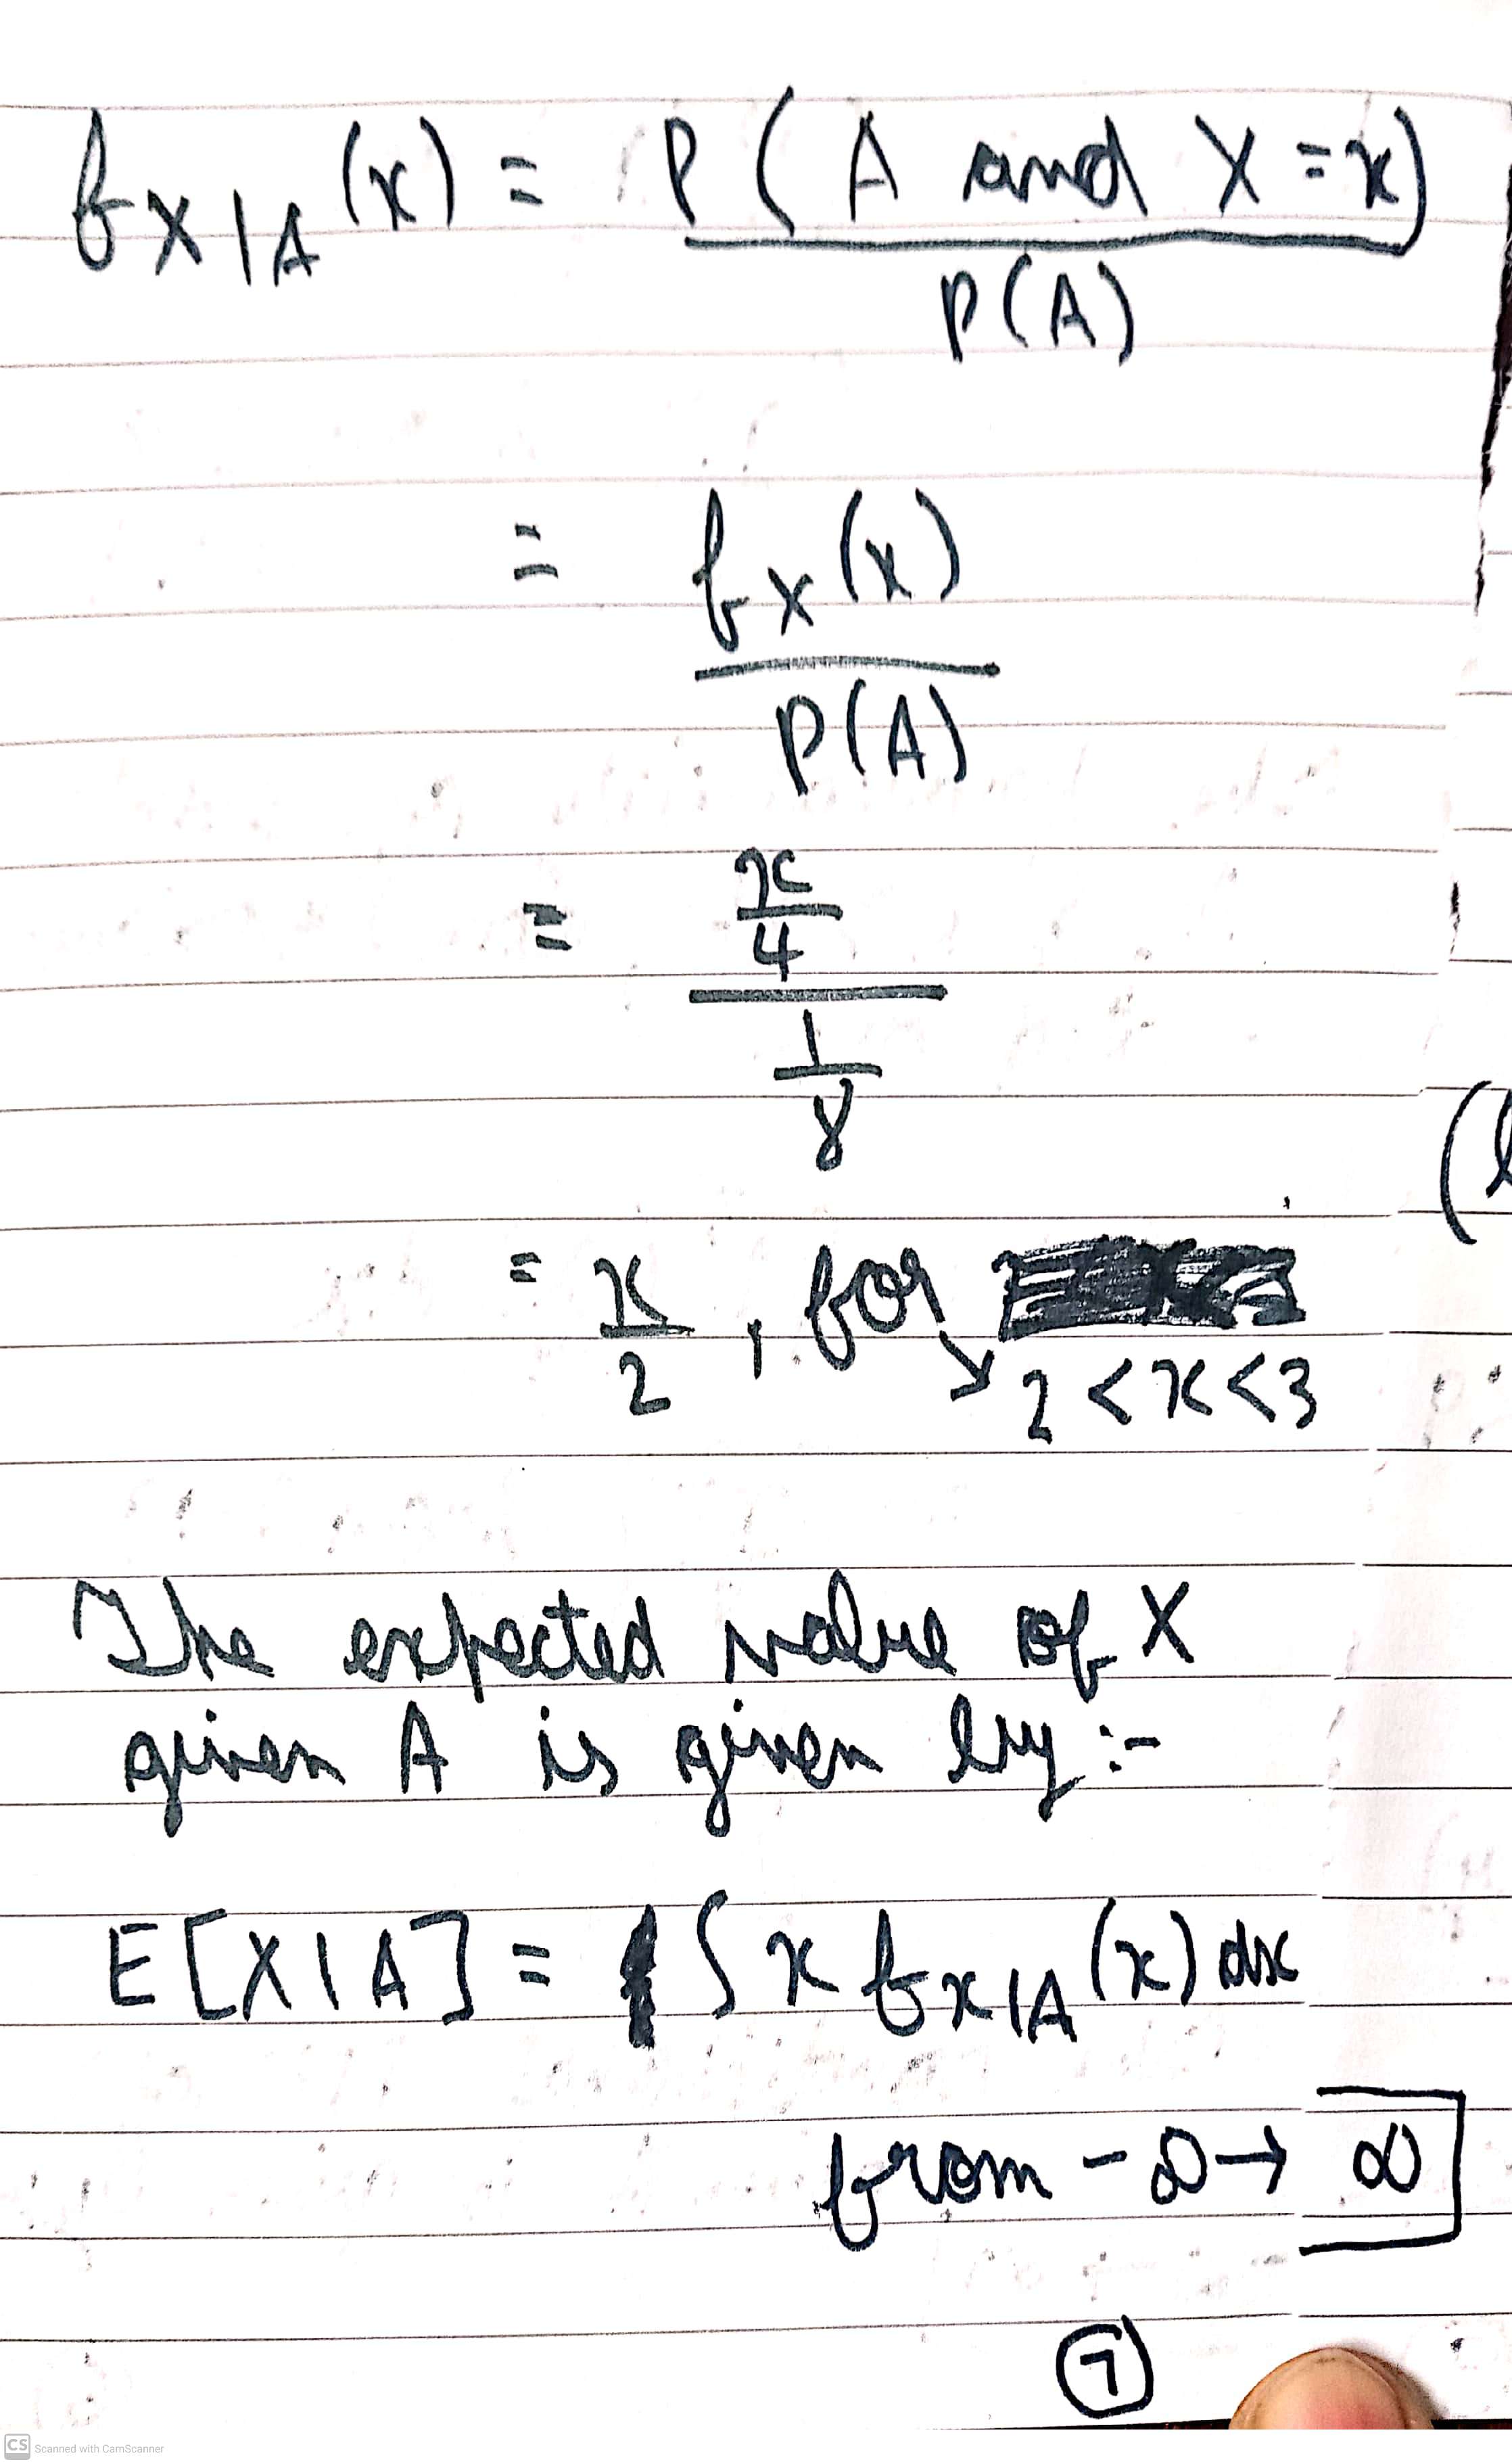 f_{X|A}(x) = P(A and X=x)
P(A)
= f_X(x)
P(A)
= x/4
1/8
= x/2 , for
2<x<3
The expected value of X
given A is given by :-
E[X|A] = ∫ x f_{X|A}(x) dx
from -∞ → ∞
7
CS Scanned with CamScanner